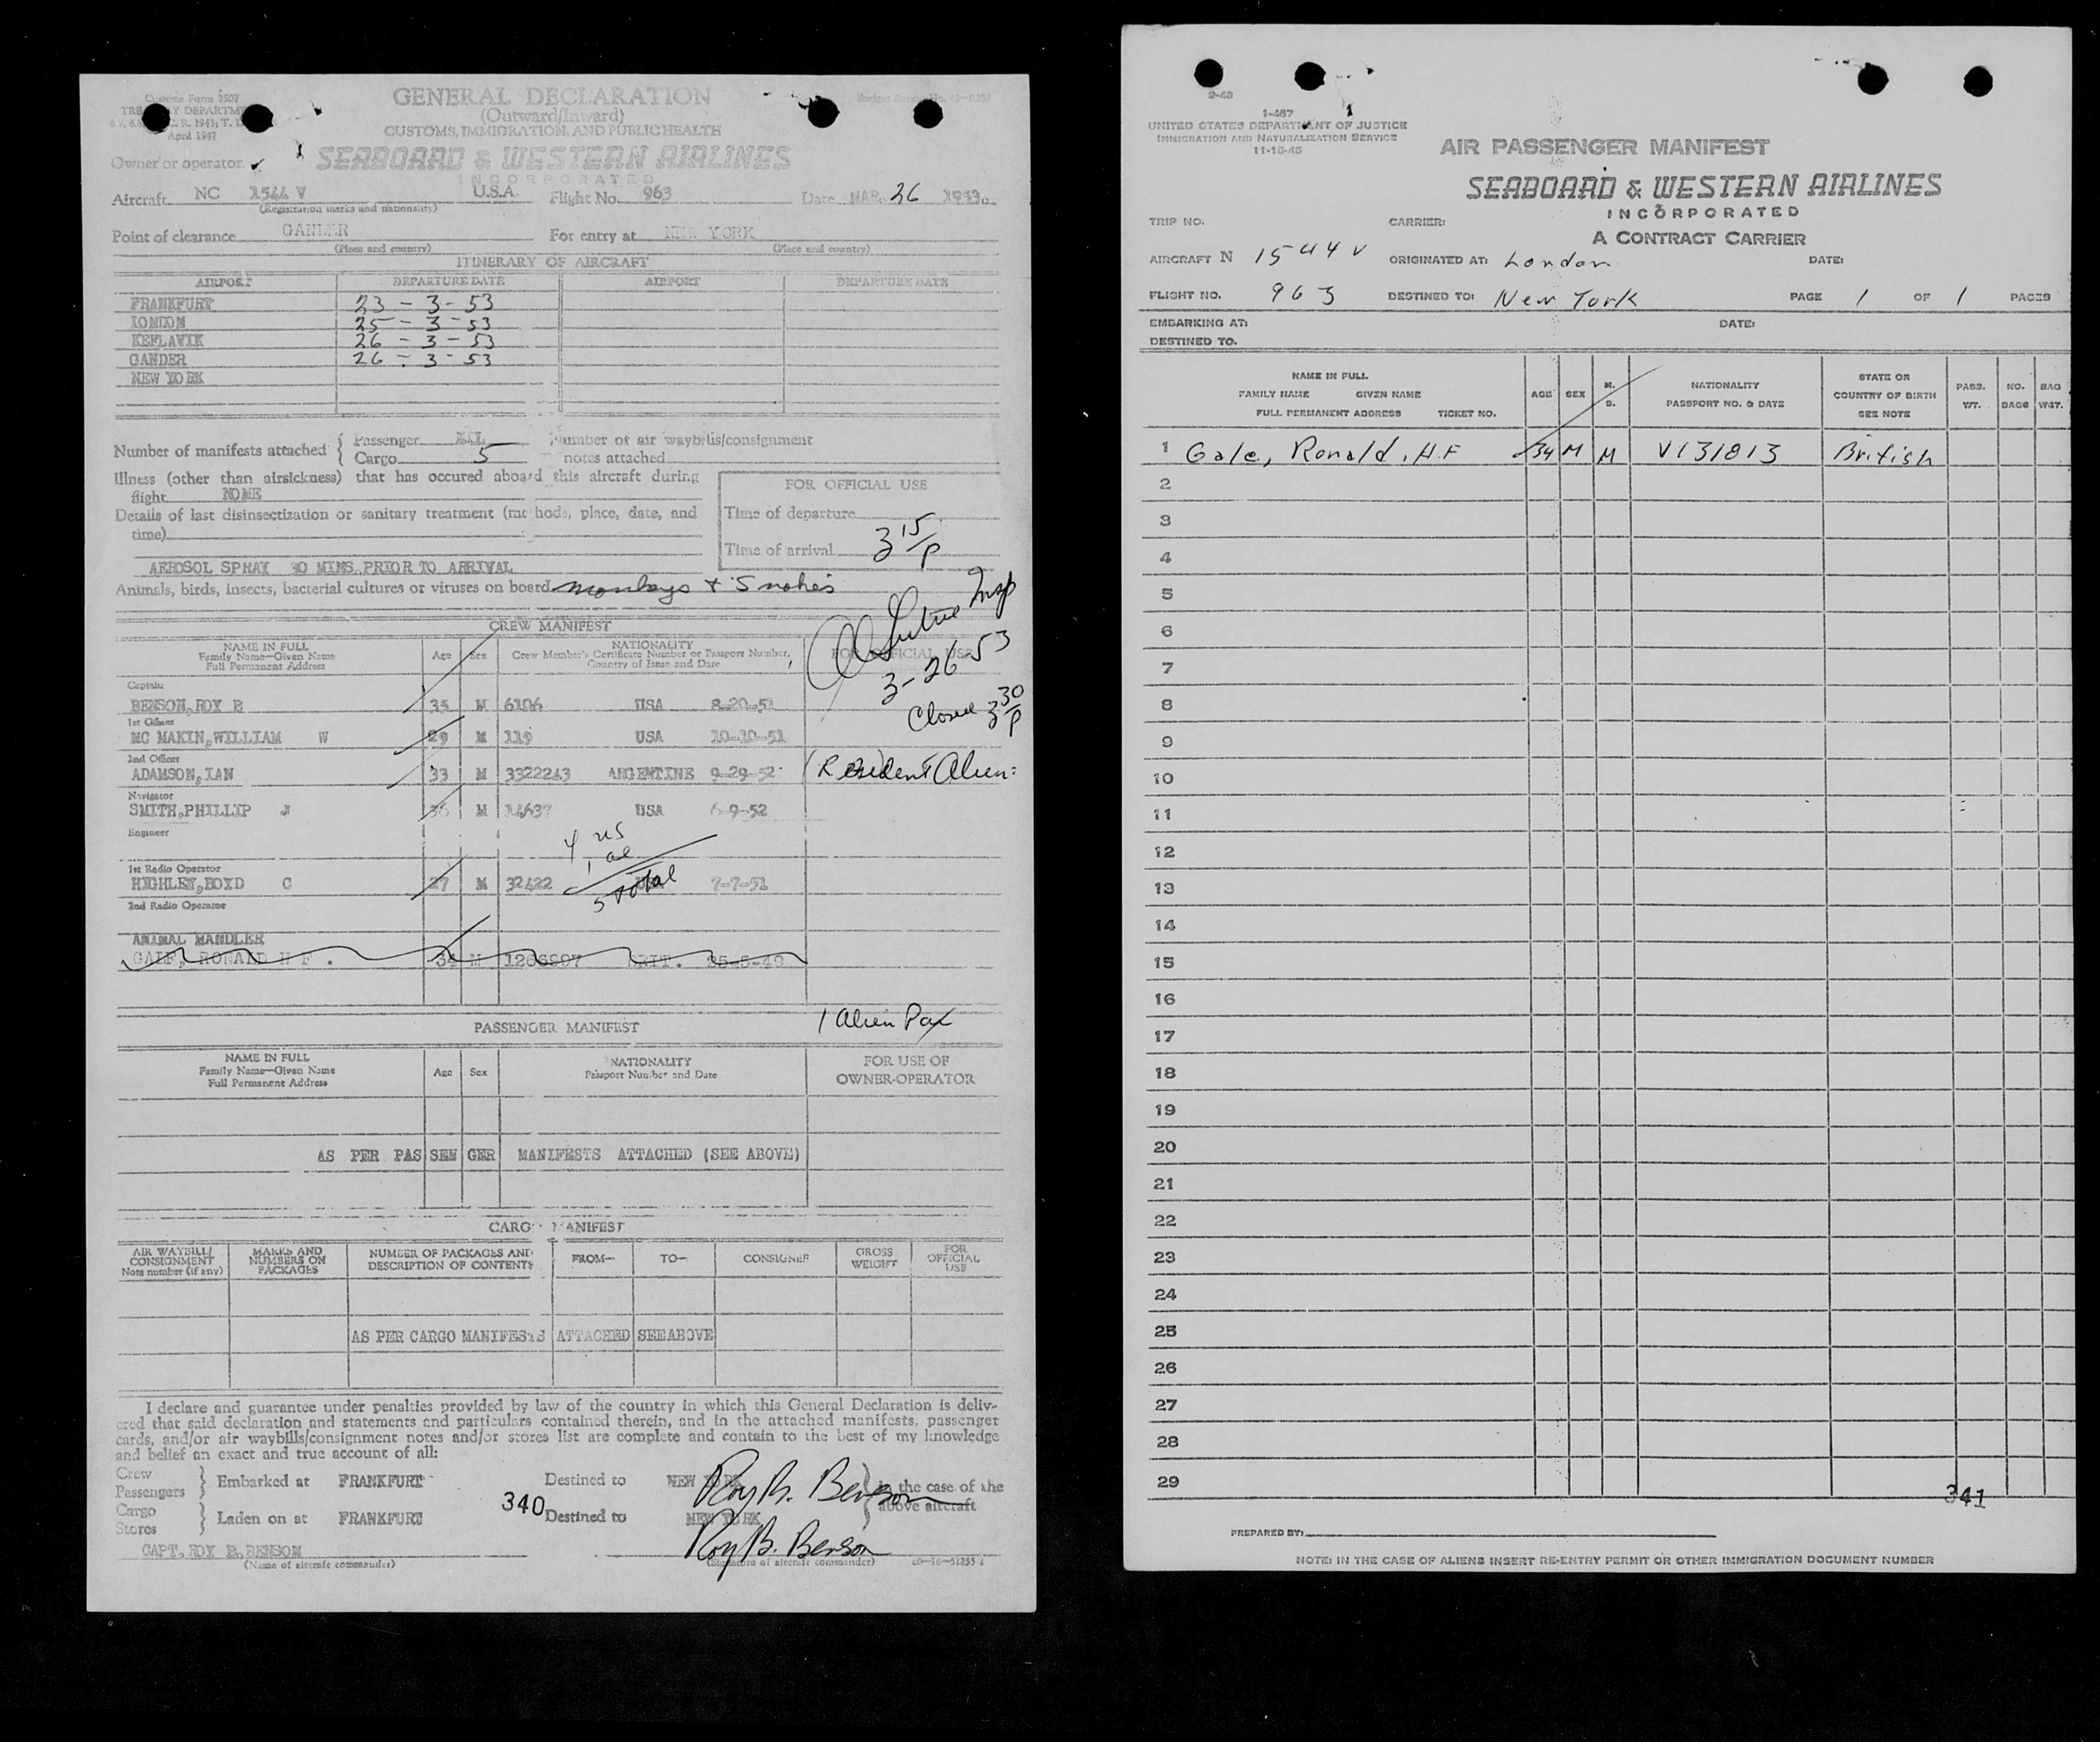 Customs Form 7507
TREASURY DEPARTMENT
C. R. 1943; T. D.
April 1947
GENERAL DECLARATION
(Outward/Inward)
CUSTOMS, IMMIGRATION, AND PUBLIC HEALTH
Owner or operator
SEABOARD & WESTERN AIRLINES
INCORPORATED
Aircraft NC 1544 V U.S.A. Flight No. 963 Date MAR. 26 1953
(Registration marks and nationality)
Point of clearance GANDER For entry at NEW YORK
(Place and country) (Place and country)
ITINERARY OF AIRCRAFT
AIRPORT DEPARTURE DATE AIRPORT DEPARTURE DATE
FRANKFURT 23 - 3 - 53
LONDON 25 - 3 - 53
KEFLAVIK 26 - 3 - 53
GANDER 26 - 3 - 53
NEW YORK
Number of manifests attached { Passenger NIL Number of air waybills/consignment
Cargo 5 notes attached
Illness (other than airsickness) that has occured aboard this aircraft during
flight NONE
FOR OFFICIAL USE
Details of last disinsectization or sanitary treatment (methods, place, date, and
time)
Time of departure
Time of arrival 3 15/P
AEROSOL SPRAY 30 MINS. PRIOR TO ARRIVAL
Animals, birds, insects, bacterial cultures or viruses on board monkeys + Snakes
Insp
3-26-53
Closed 3 30/P
CREW MANIFEST
NAME IN FULL
Family Name—Given Name
Full Permanent Address
Age Sex
NATIONALITY
Crew Member's Certificate Number or Passport Number,
Country of Issue and Date
FOR OFFICIAL USE
Captain
BENSON, ROY B 35 M 6106 USA 8-20-51
1st Officer
MC MAKIN, WILLIAM W 29 M 119 USA 10-10-51
2nd Officer
ADAMSON, IAN 33 M 3322243 ARGENTINE 9-29-52 (Resident Alien)
Navigator
SMITH, PHILLIP J 36 M 14637 USA 6-9-52
Engineer
4 us
1 al
5 total
1st Radio Operator
HIGHLEY, BOYD C 27 M 32422 USA 7-7-51
2nd Radio Operator
ANIMAL HANDLER
GALE, RONALD H F . 34 M 1266907 BRIT. 25-5-49
PASSENGER MANIFEST
1 Alien Pax
NAME IN FULL
Family Name—Given Name
Full Permanent Address
Age Sex
NATIONALITY
Passport Number and Date
FOR USE OF
OWNER-OPERATOR
AS PER PASSENGER MANIFESTS ATTACHED (SEE ABOVE)
CARGO MANIFEST
AIR WAYBILL/
CONSIGNMENT
Note number (if any)
MARKS AND
NUMBERS ON
PACKAGES
NUMBER OF PACKAGES AND
DESCRIPTION OF CONTENTS
FROM—
TO—
CONSIGNEE
GROSS
WEIGHT
FOR
OFFICIAL
USE
AS PER CARGO MANIFESTS ATTACHED SEE ABOVE
I declare and guarantee under penalties provided by law of the country in which this General Declaration is deliv-
ered that said declaration and statements and particulars contained therein, and in the attached manifests, passenger
cards, and/or air waybills/consignment notes and/or stores list are complete and contain to the best of my knowledge
and belief an exact and true account of all:
Crew
Passengers } Embarked at FRANKFURT Destined to NEW YORK } in the case of the
above aircraft
Roy B. Benson
Cargo
Stores } Laden on at FRANKFURT 340 Destined to NEW YORK
CAPT. ROY B. BENSON
(Name of aircraft commander)
Roy B. Benson
(Signature of aircraft commander)
9-48
1-487
UNITED STATES DEPARTMENT OF JUSTICE
IMMIGRATION AND NATURALIZATION SERVICE
11-16-45
AIR PASSENGER MANIFEST
SEABOARD & WESTERN AIRLINES
INCORPORATED
A CONTRACT CARRIER
TRIP NO. CARRIER:
AIRCRAFT N 1544 V ORIGINATED AT: London DATE:
FLIGHT NO. 963 DESTINED TO: New York PAGE 1 OF 1 PAGES
EMBARKING AT: DATE:
DESTINED TO.
NAME IN FULL
FAMILY NAME GIVEN NAME
FULL PERMANENT ADDRESS TICKET NO.
AGE SEX
M.
S.
NATIONALITY
PASSPORT NO. & DATE
STATE OR
COUNTRY OF BIRTH
SEE NOTE
PASS.
WT.
NO.
BAGS
BAG
WGT.
1 Gale, Ronald, H.F 34 M M V131813 British
2
3
4
5
6
7
8
9
10
11
12
13
14
15
16
17
18
19
20
21
22
23
24
25
26
27
28
29
341
PREPARED BY:
NOTE: IN THE CASE OF ALIENS INSERT RE-ENTRY PERMIT OR OTHER IMMIGRATION DOCUMENT NUMBER